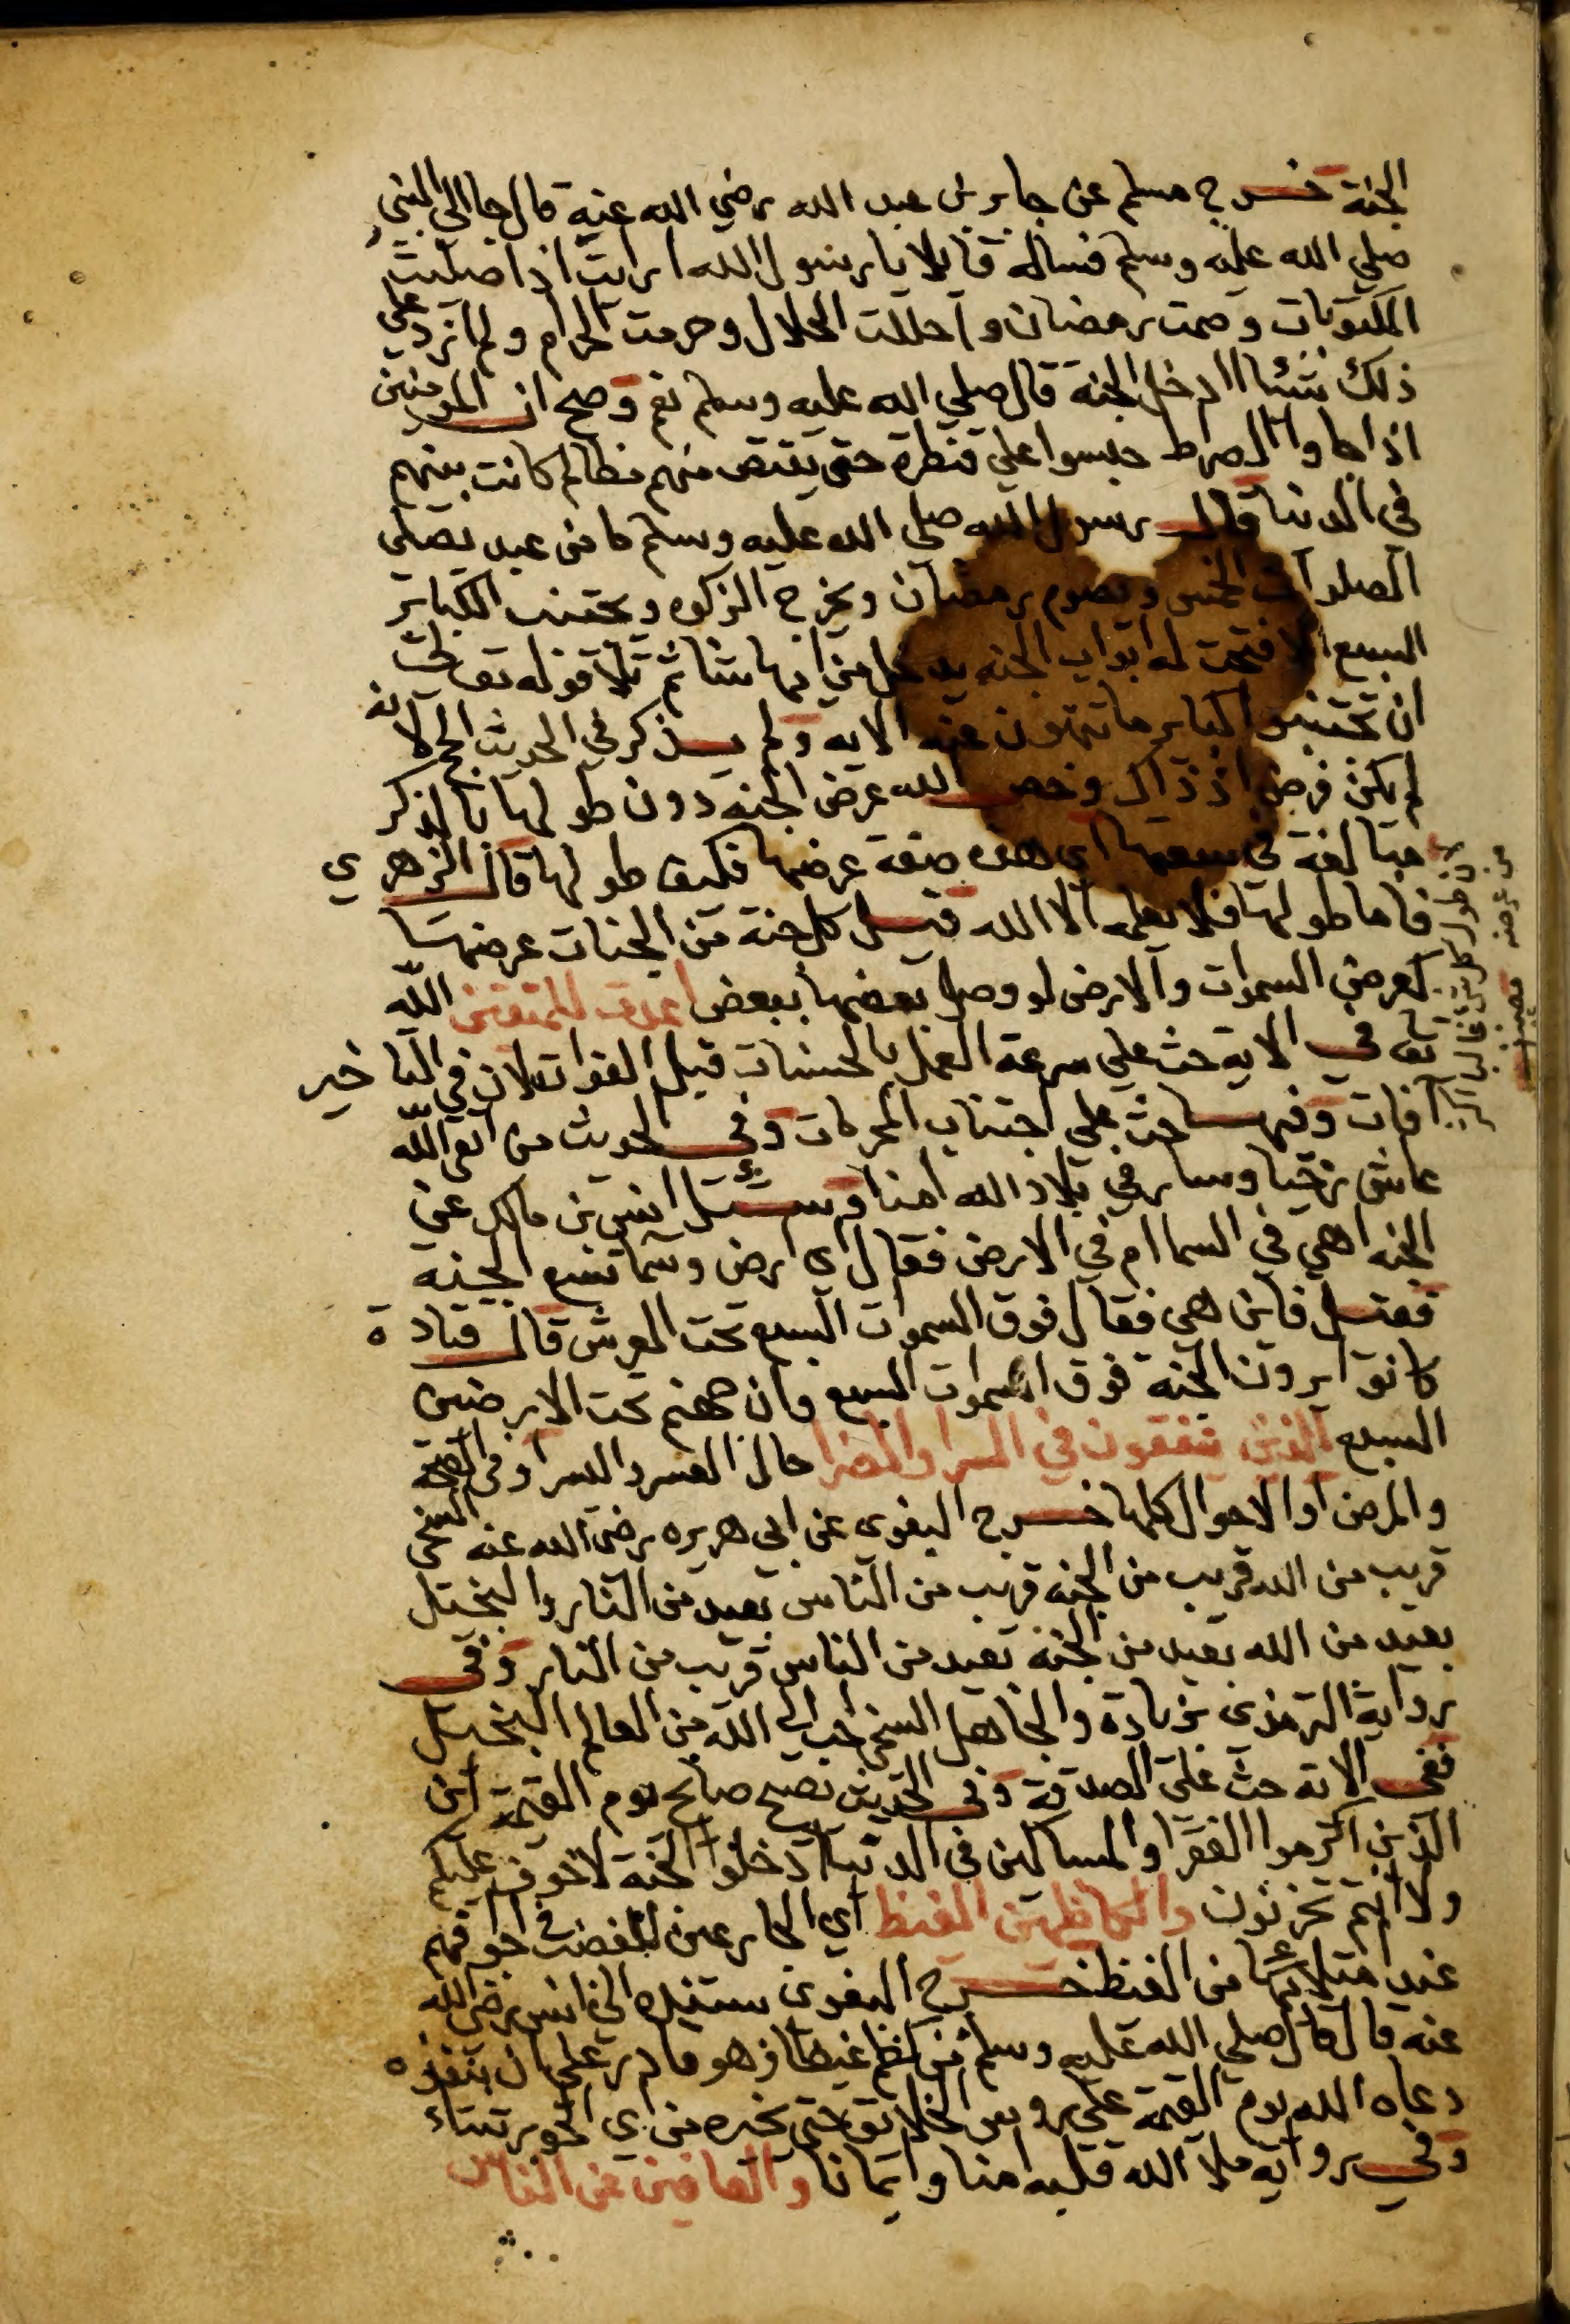 الجنة خرج مسلم عن جابر بن عبد الله رضي الله عنه قال جا الى النبي
صلي الله عليه وسلم فساله قايلا يا رسول الله ارايت اذا صليت
المكتوبات وصمت رمضان واحللت الحلال وحرمت الحرام ولم ازد علي
ذلك شئا ادخل الجنة قال صلي الله عليه وسلم نعم وصح ان المومنين
اذا جاوا الصراط حبسوا علي قنطرة حتى يقتص منهم مظالم كانت بينهم
في الدنيا قال رسول الله صلي الله عليه وسلم ما من عبد يصلي
الصلوات الخمس ويصوم رمضان ويخرج الزكوه ويجتنب الكباير
السبع الا فتحت له ابواب الجنه يدخل من ايها شا ثم تلا قوله تعالى
ان تجتنبوا كباير ما تنهون عنه الايه ولم يذكر في الحديث الحج لانه
لم يكن فرض اذ ذاك وخص الله عرض الجنه دون طولها بالذكر
مبالغة في سعتها اي هذه صفة عرضها فكيف طولها قال الزهري
فاما طولها فلا يعلمه الا الله قيل كل جنة من الجنات عرضها
كعرض السموات والارض لو وصل بعضها ببعض اعدت للمتقين الله
تعا في الاية حث علي سرعة العمل بالحسنات قبل الفوات لان في التاخير
افات وفيها حث علي اجتناب المحرمات وفي الحديث من اتقى الله
عاش رخيا وسار في بلاد الله امنا وسئل انس بن مالك عن
الجنه اهي في السما ام في الارض فقال اي ارض وسما تسع الجنه
فقيل فاين هي فقال فوق السموات السبع تحت العرش قال قتادة
كانوا يرون الجنة فوق السموات السبع وان جهنم تحت الارضين
السبع الذين ينفقون في السرا والضرا حال العسر واليسر او في الصحة
والمرض او الاحوال كلها خرج البغوى عن ابي هريره رضي الله عنه السخي
قريب من الله قريب من الجنه قريب من الناس بعيد من النار والبخيل
بعيد من الله بعيد من الجنة بعيد من الناس قريب من النار وفي
رواية الترمذي بزيادة والجاهل السخي احب الي الله من العالم البخيل
ففي الاية حث على الصدقة وفي الحديث يصيح صايح يوم القيمة اين
الذين اكرموا الفقرا والمساكين في الدنيا ادخلوا الجنة لا خوف عليكم
ولا انتم تحزنون والكاظمين الغيظ اي الجارعين الغضب في اجوافهم
عند امتلائها من الغيظ خرج البغوى بسنده الى انس رضي الله
عنه قال قال صلي الله عليه وسلم من كظم غيظا وهو قادر علي ان ينفذه
دعاه الله يوم القيمة علي روس الخلايق حتى يخيره من اي الحور شاء
وفي رواية ملا الله قلبه امنا وايمانا والعافين عن الناس